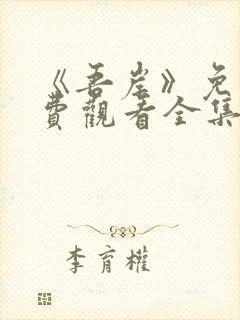 《吾岸》免
費觀看全集
李育權